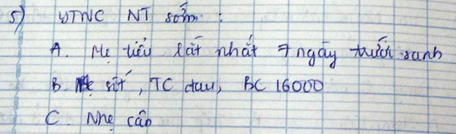 5) YTNC NT sớm :
A. Mẹ tiểu lắt nhắt 7 ngày trước sanh
B. Mẹ sốt, TC đau, BC 16000
C. Nhẹ cân